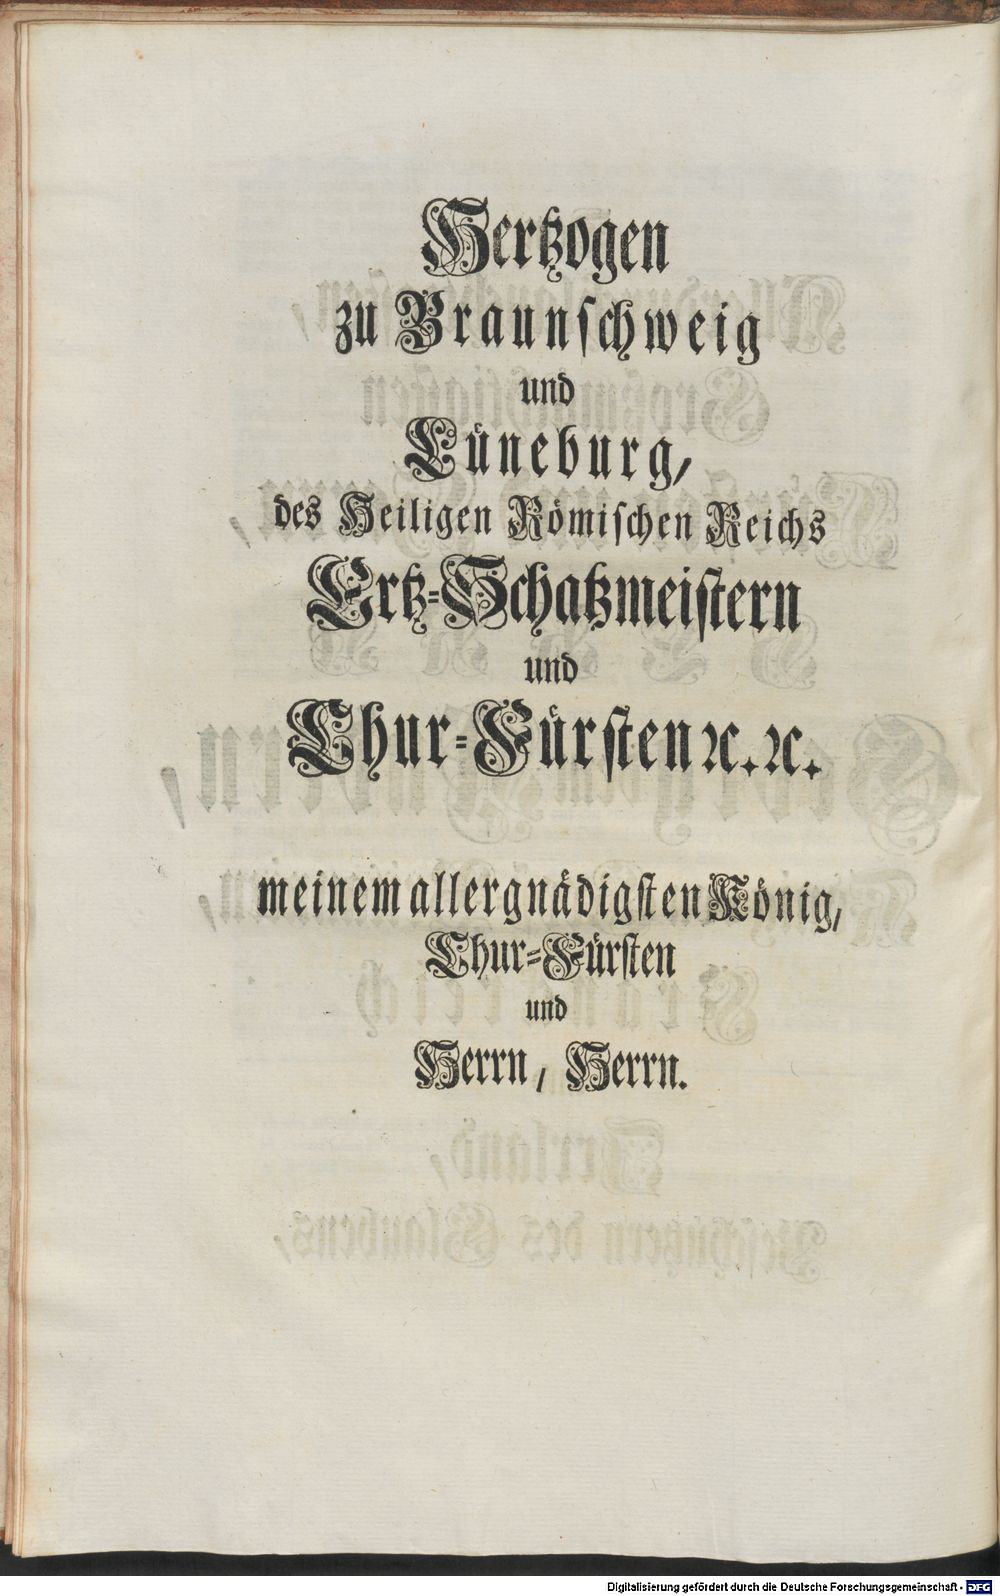 Hertzogen
zu Braunschweig
und
Lüneburg,
des Heiligen Römischen Reichs
Ertz-Schatzmeistern
und
Chur-Fürsten ꝛc. ꝛc.
meinem allergnädigsten König,
Chur-Fürsten
und
Herrn, Herrn.
Digitalisierung gefördert durch die Deutsche Forschungsgemeinschaft - DFG